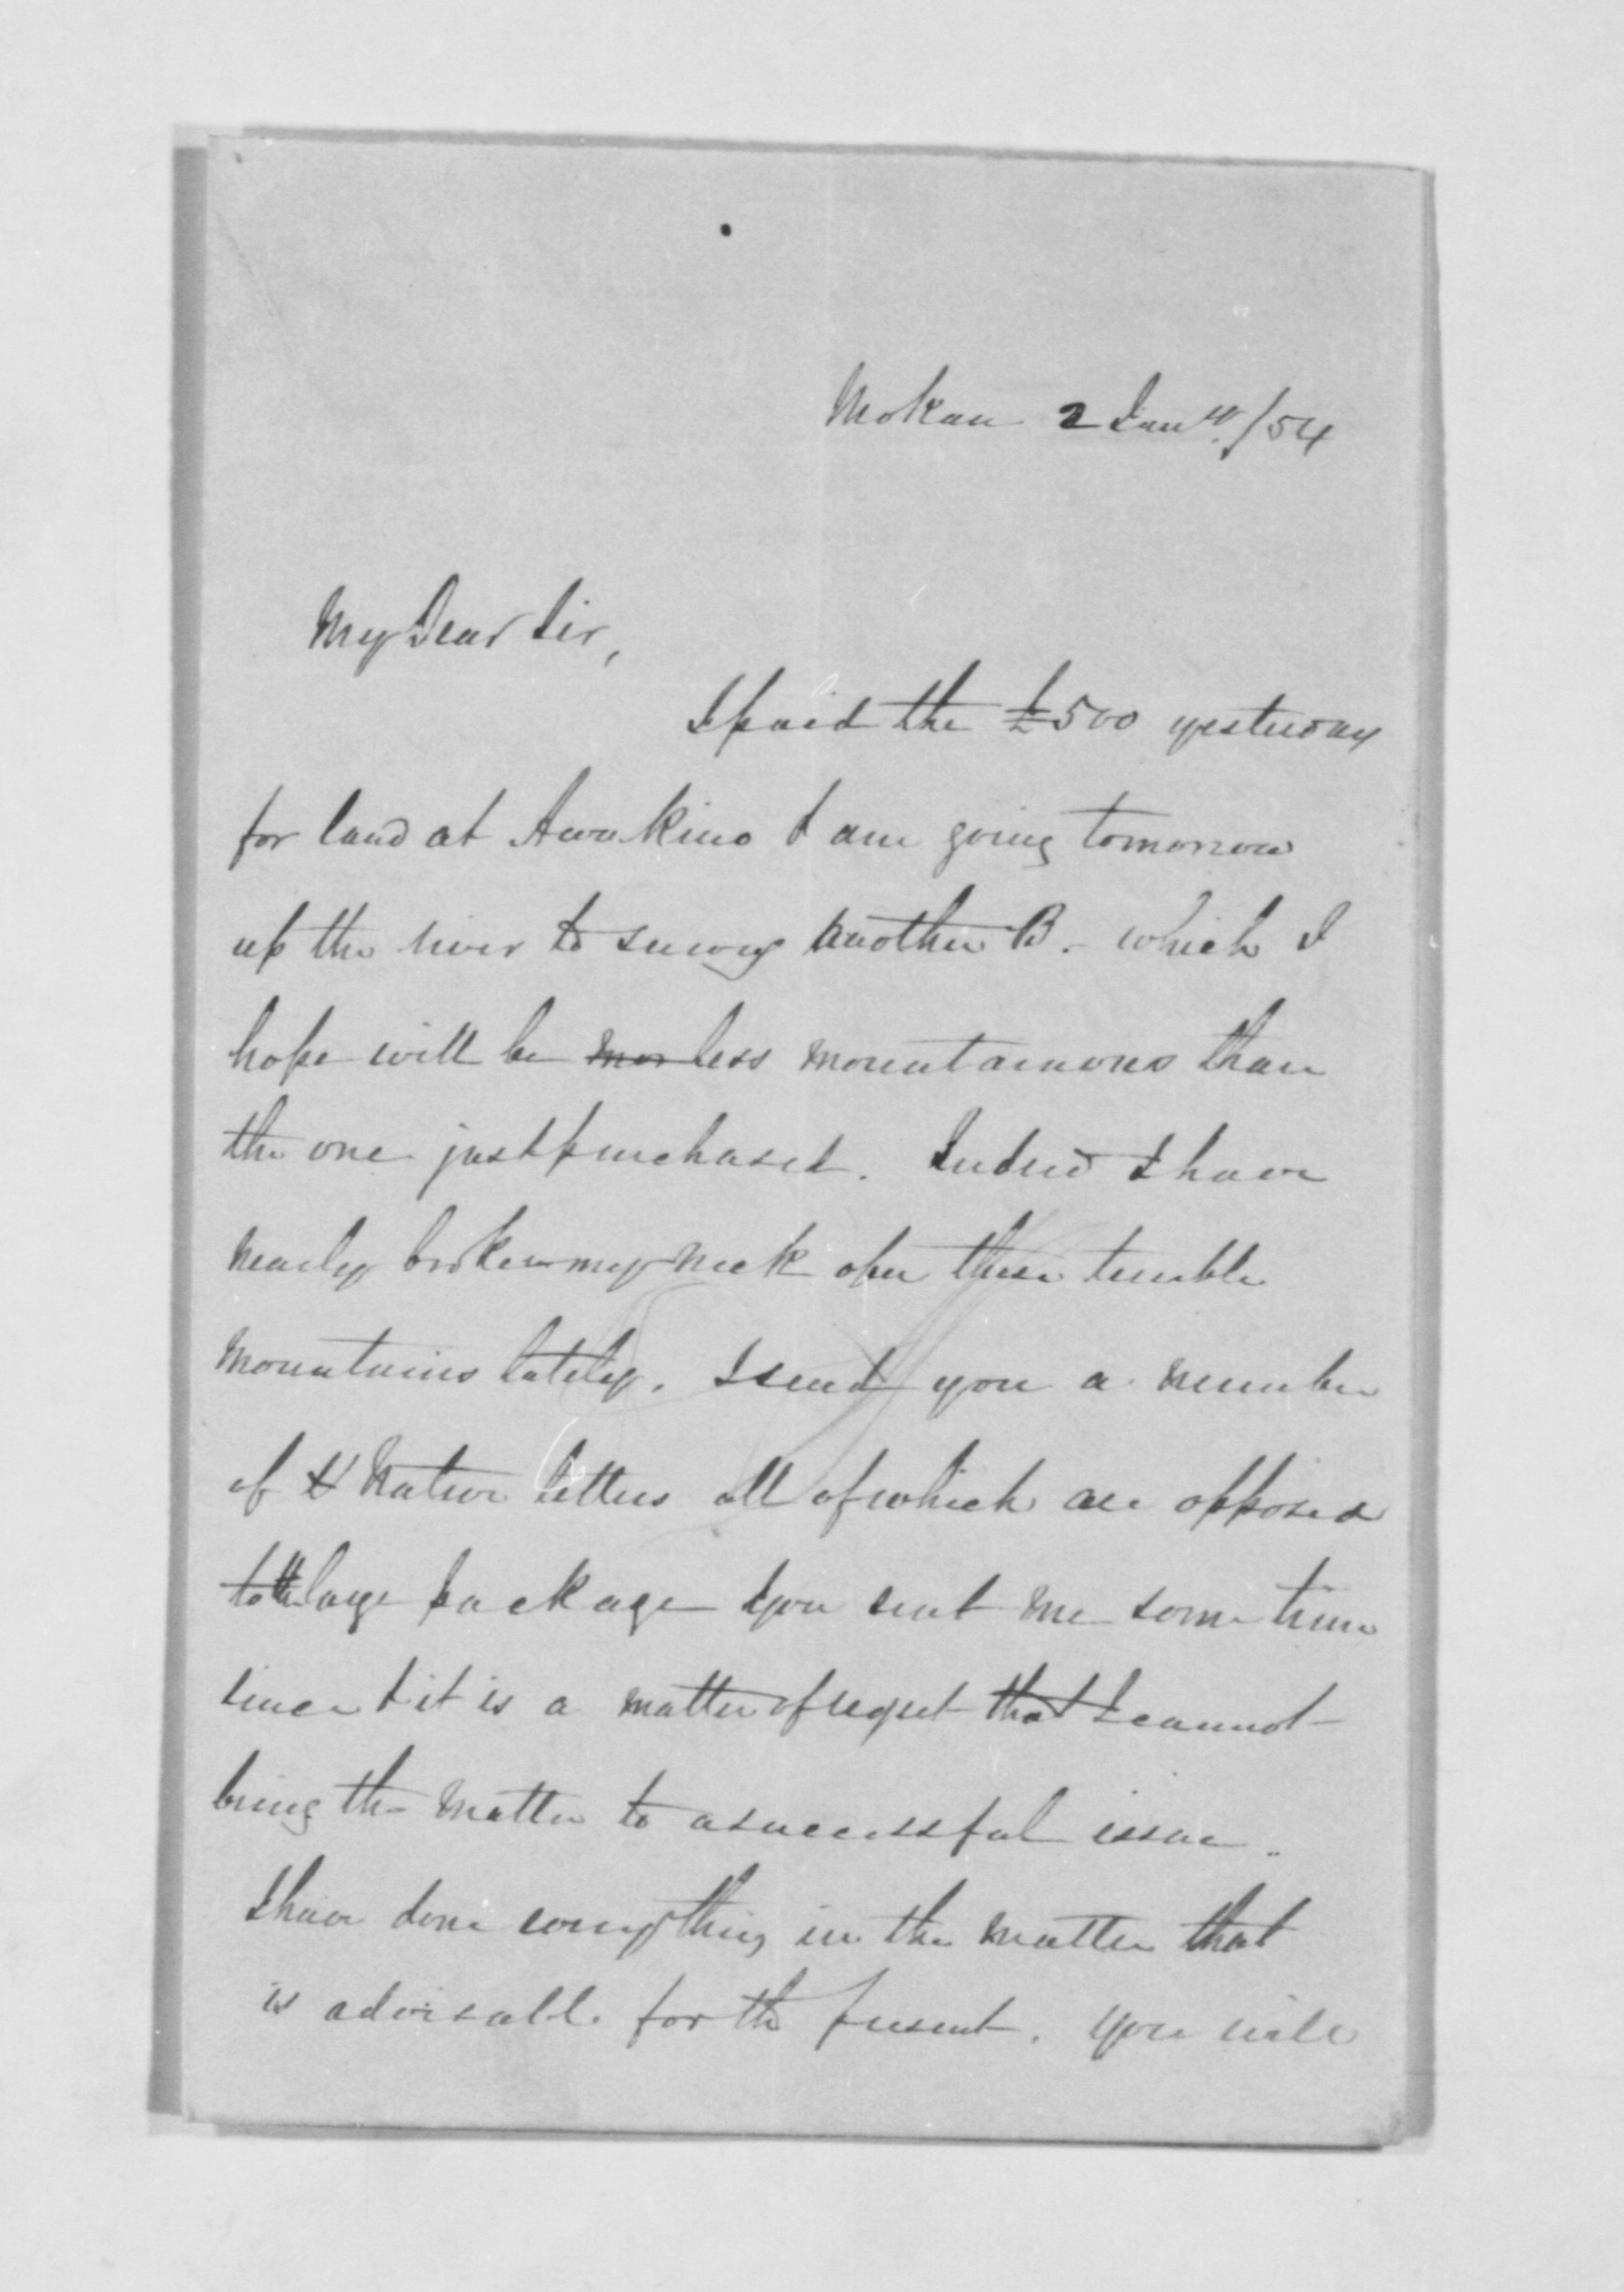 Mokau 2 Jany./54
My Dear Sir,
I paid the £500 yesterday
for land at Awakino I am going tomorrow
up the river to survey another B. - which I
hope will be mor less mountainous than
the one just purchased. Indeed I have
nearly broken my neck over these terrible
mountains lately. I send you a number
of Native letters all of which are opposed
to the large package you sent me some time
since & it is a matter of regret that I cannot
bring the matter to a successful issue.
I have done everything in the matter that
is advisable for the present. You will